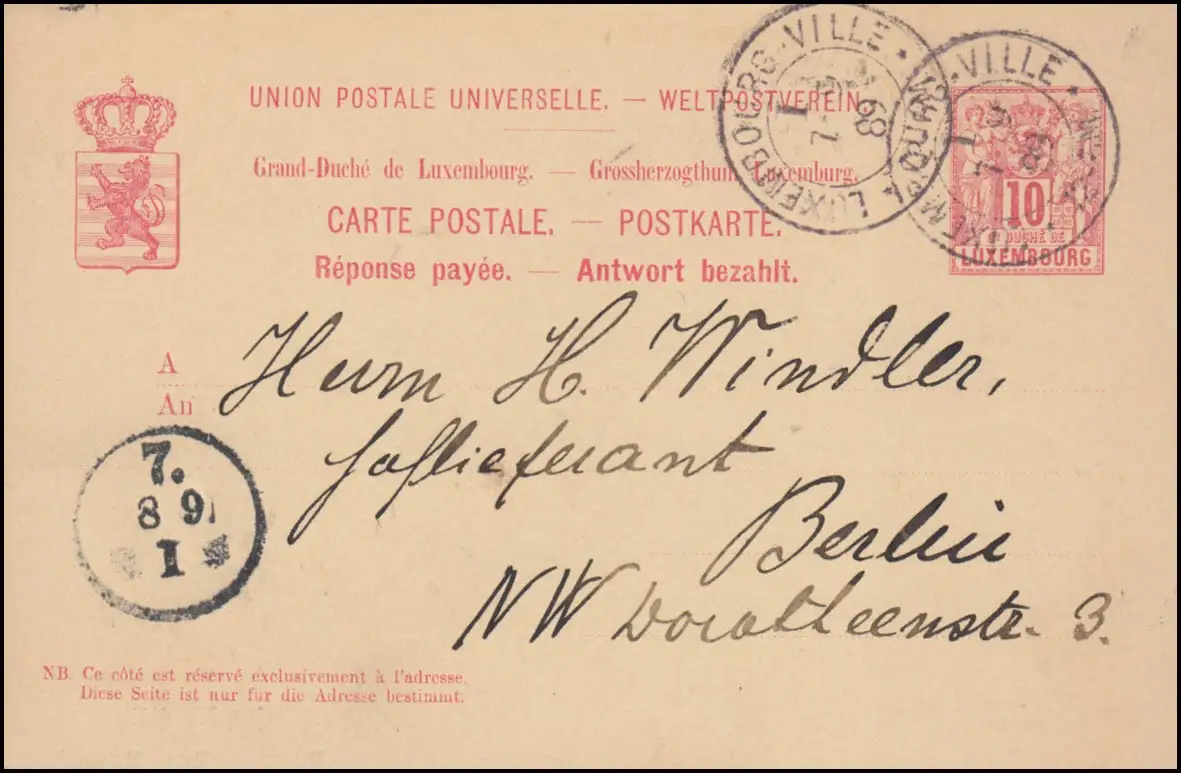 UNION POSTALE UNIVERSELLE. — WELTPOSTVEREIN.
Grand-Duché de Luxembourg. — Grossherzogthum Luxemburg.
CARTE POSTALE. — POSTKARTE.
Réponse payée. — Antwort bezahlt.
LUXEMBOURG-VILLE
LUXEMBOURG-VILLE
10
DUCHÉ DE
LUXEMBOURG
A
An
Herrn H. Windler,
Hoflieferant
Berlin
NW Dorotheenstr. 3.
7.
8 9
I
NB. Ce côté est réservé exclusivement à l'adresse.
Diese Seite ist nur für die Adresse bestimmt.